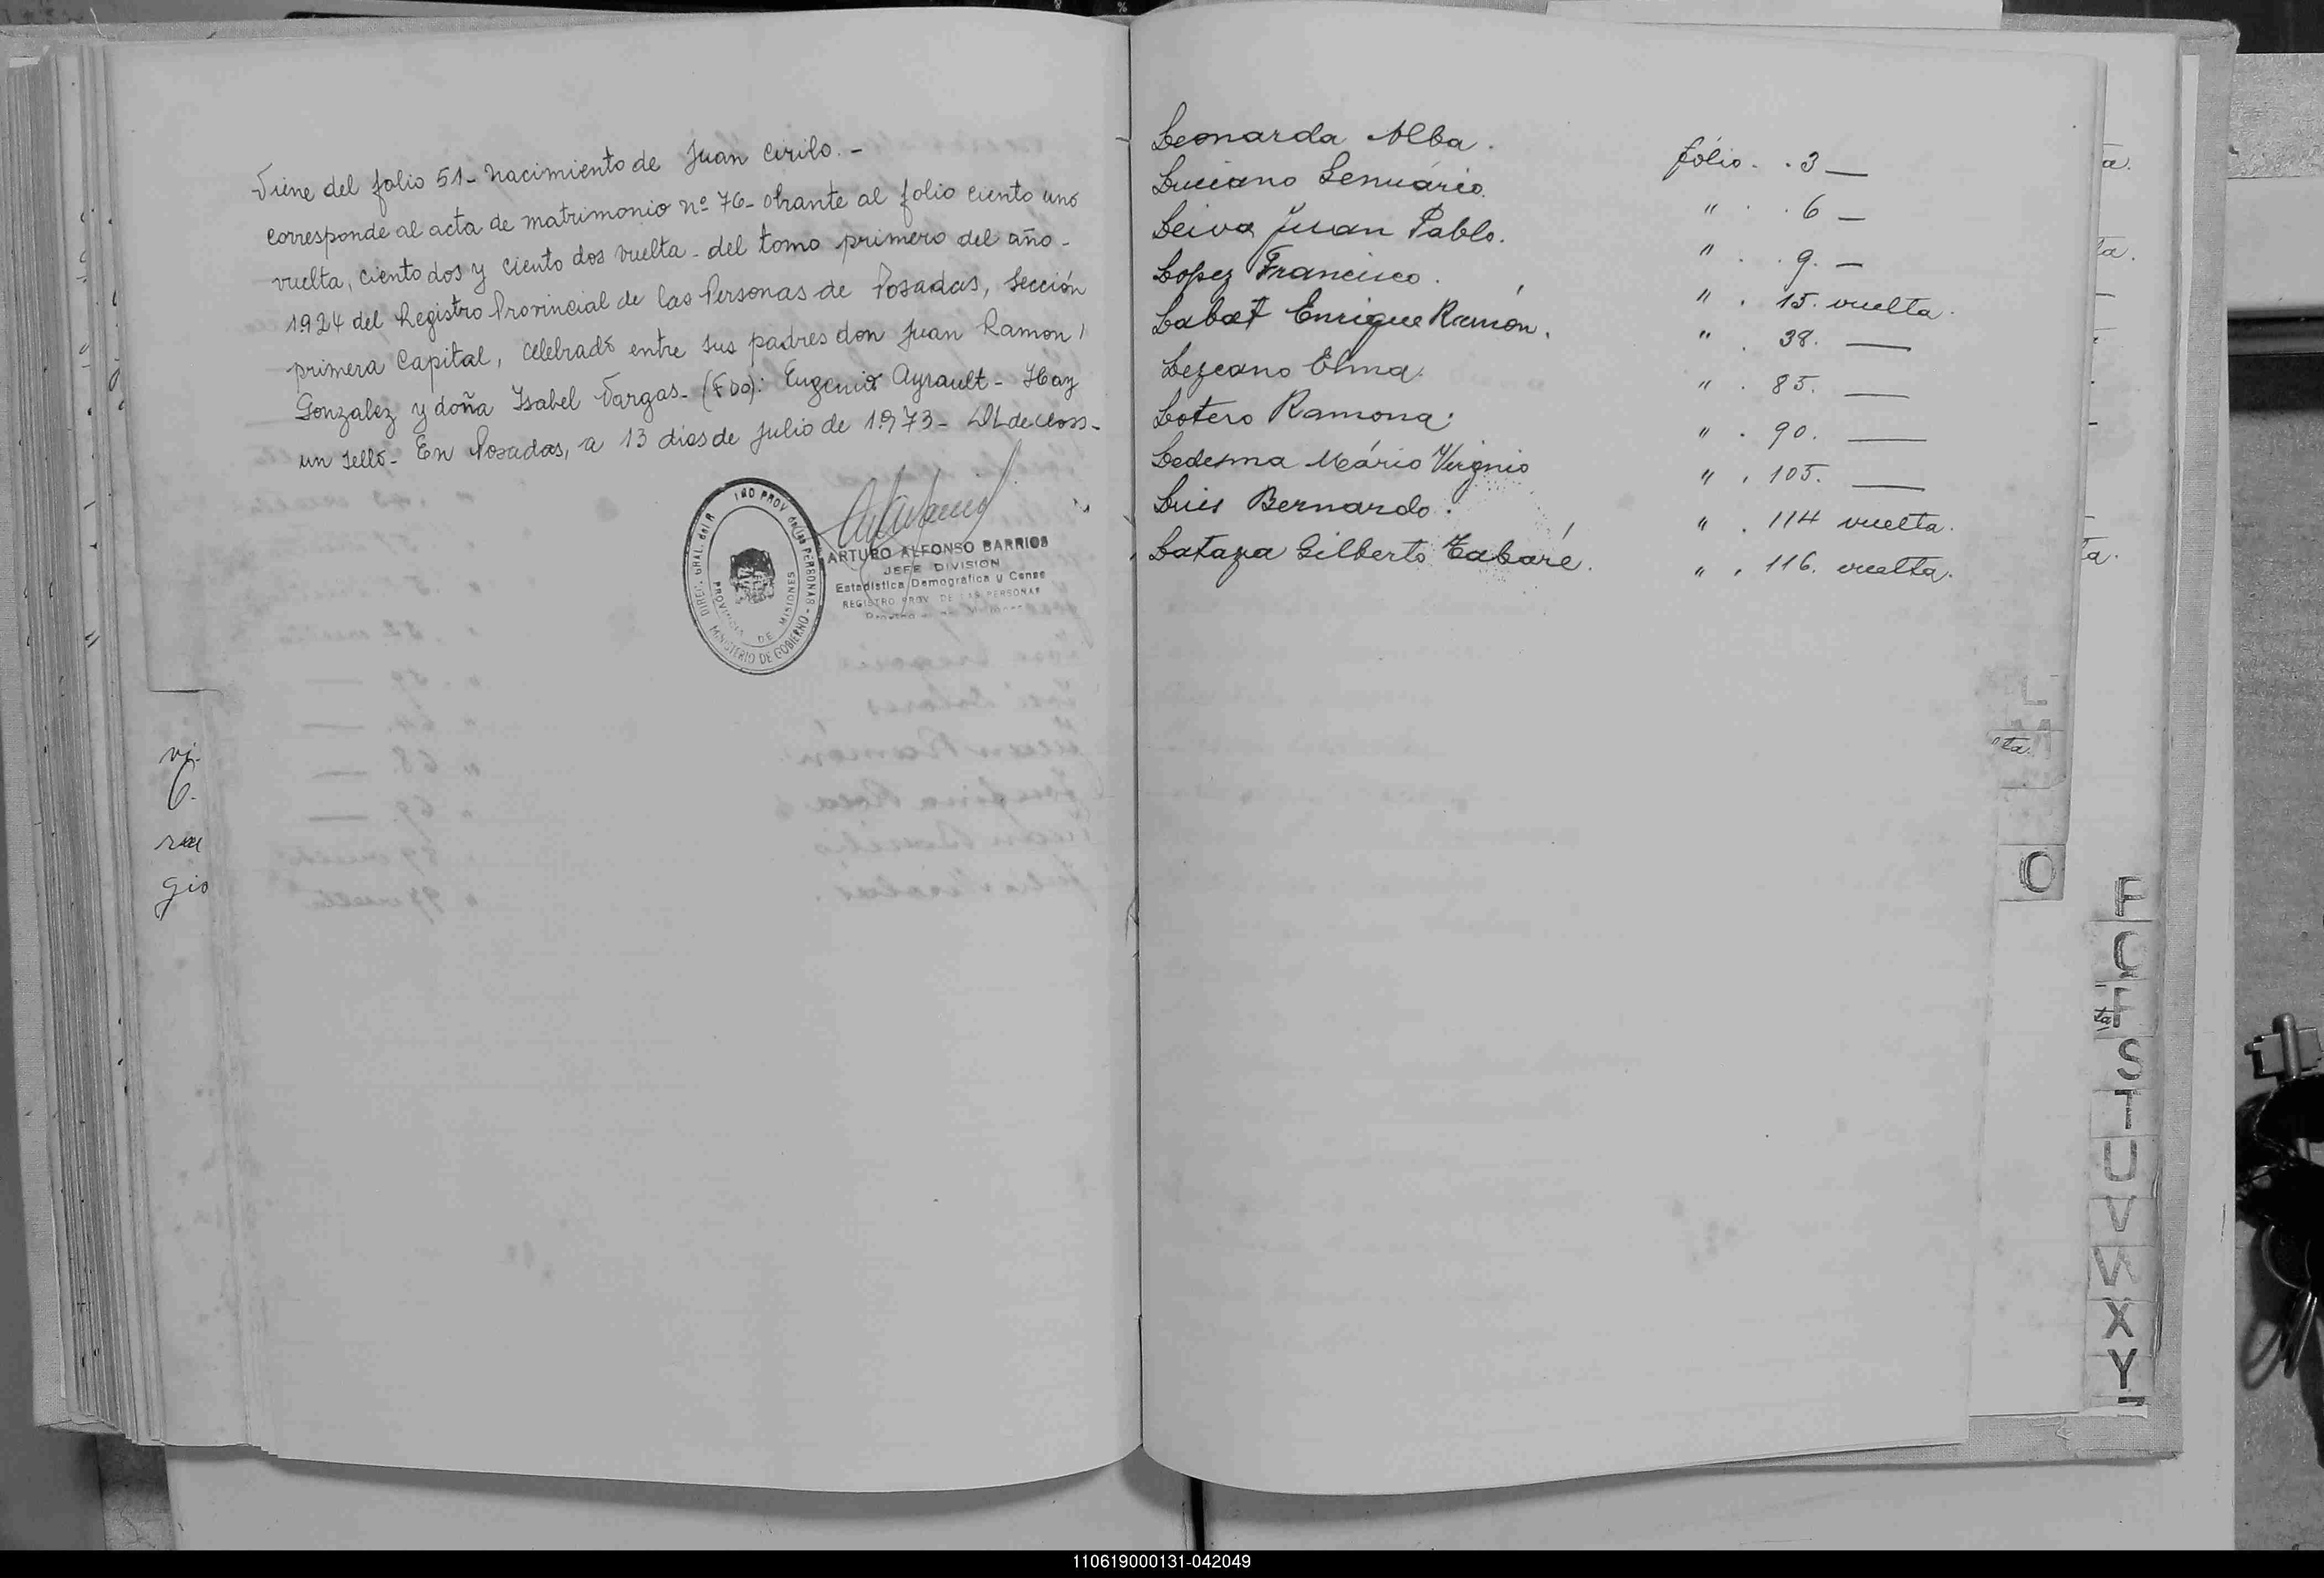 Viene del folio 51- Nacimiento de Juan Cirilo.-
corresponde al acta de matrimonio nº 76- obrante al folio ciento uno
vuelta, ciento dos y ciento dos vuelta- del tomo primero del año-
1924 del Registro Provincial de las Personas de Posadas, Sección
primera Capital, celebrado entre sus padres don Juan Ramon
Gonzalez y doña Isabel Vargas- (Fdo): Eugenio Ayrault- Hay
un sello- En Posadas, a 13 dias de julio de 1973-
DIREC. GRAL. del R PROV de las PERSONAS - MINISTERIO DE GOBIERNO
PROVINCIA DE MISIONES
ARTURO ALFONSO BARRIOS
JEFE DIVISION
Estadística Demográfica y Censo
REGISTRO PROV. DE LAS PERSONAS
vi-
6.
gio
Leonarda Alba. fólio. . 3 —
Luciano Genuário. " . . 6 —
Leiva Juan Pablo. " . . 9. —
Lopez Francisco. " . 15. vuelta.
Labat Enrique Ramón. " . 38. —
Lezcano Elma. " . 85. —
Lotero Ramona. " . 90. —
Ledesma Mário Virginio " . 105. —
Luis Bernardo. " . 114 vuelta.
Lataza Gilberto Tabaré. " . 116. vuelta.
ta.
L
M
O
S
T
U
V
W
X
Y
110619000131-042049